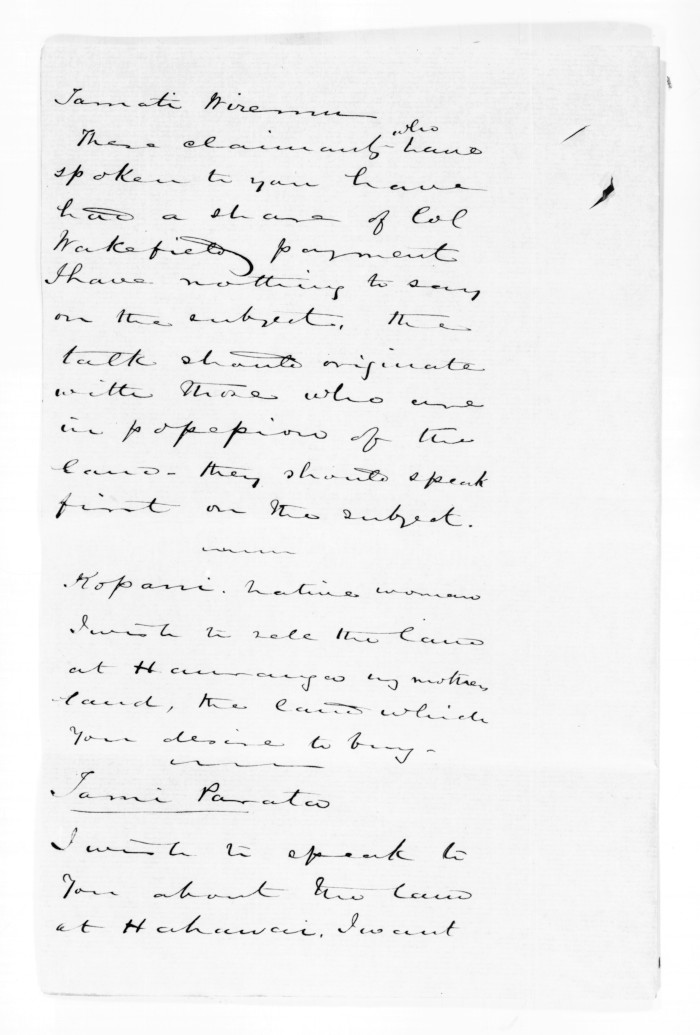 Tamati Wiremu
These claimants who have
spoken to you have
had a share of Col
Wakefield payment
I have nothing to say
on the subject. the
talk should originate
with those who are
in possession of the
land - they should speak
first on the subject.
Kopani. native woman
I wish to sell the land
at my mothers
land, the land which
you desire to buy -
Tami Parata
I wish to speak to
you about the land
at Hahawai. I want